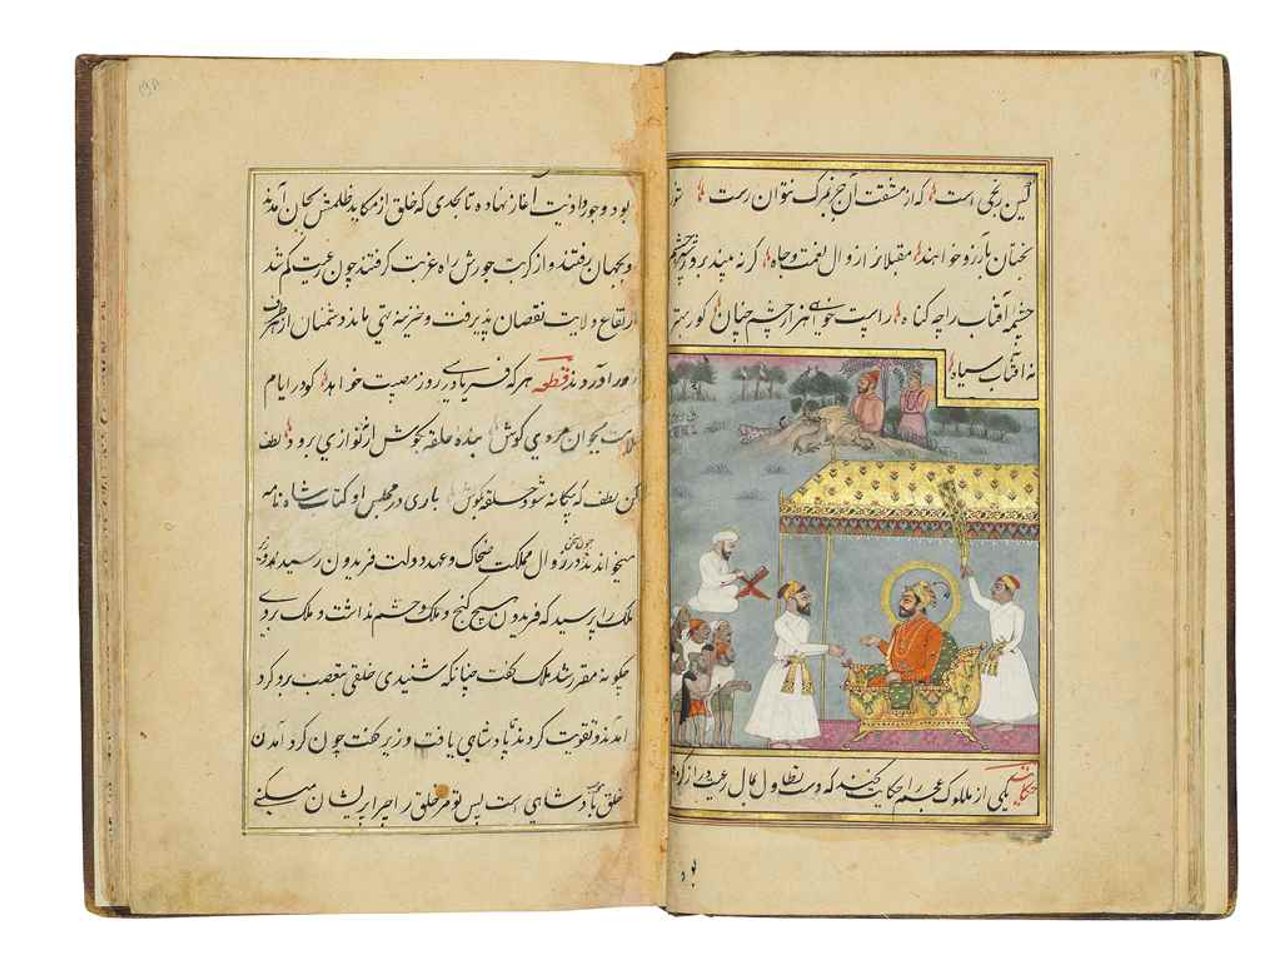 کین رنجی است که از مشقت آن جز بمرک نتوان رست شور
بختان بآرزو خواهند مقبلانرا زوال نعمت و جاه کر نه بیند بروز شپره چشم
چشمه آفتاب را چه کناه راست خواهی هزار چشم چنان کور بهتر
نه آفتاب سیاه
حکایت یکی از ملوک عجم را حکایت کنند که دست تطاول بمال رعیت دراز کرده
بود
بود و جور و اذیت آغاز نهاده تا بجدی که خلق از مکاید ظلمش بجان آمدند
و بجهان برفتند و از کربت جورش راه غربت کرفتند چون رعیت کم شد
ارتفاع ولایت نقصان پذیرفت و خزینه تهی ماند دشمنان از هر طرف
زور آوردند قطعه هر که فریادرس روز مصیبت خواهد کو در ایام
سلامت بجوان مردی کوش بنده حلقه بکوش ار ننوازی برود لطف
کن لطف که بیکانه شود حلقه بکوش باری در مجلس او کتاب شاه نامه
میخواندند در زوال مملکت ضحاک و عهد دولت فریدون رسیدند وزیر
ملک را پرسید که فریدون هیچ کنج و ملک و حشم نداشت و ملک بروی
چکونه مقرر شد ملک کفت چنانکه شنیدی خلقی بتعصب برو کرد
آمدند و تقویت کردند تا پادشاهی یافت وزیر کفت چون کرد آمدن
خلق موجب پادشاهی است پس تو مر خلق را چرا پریشان میکنی